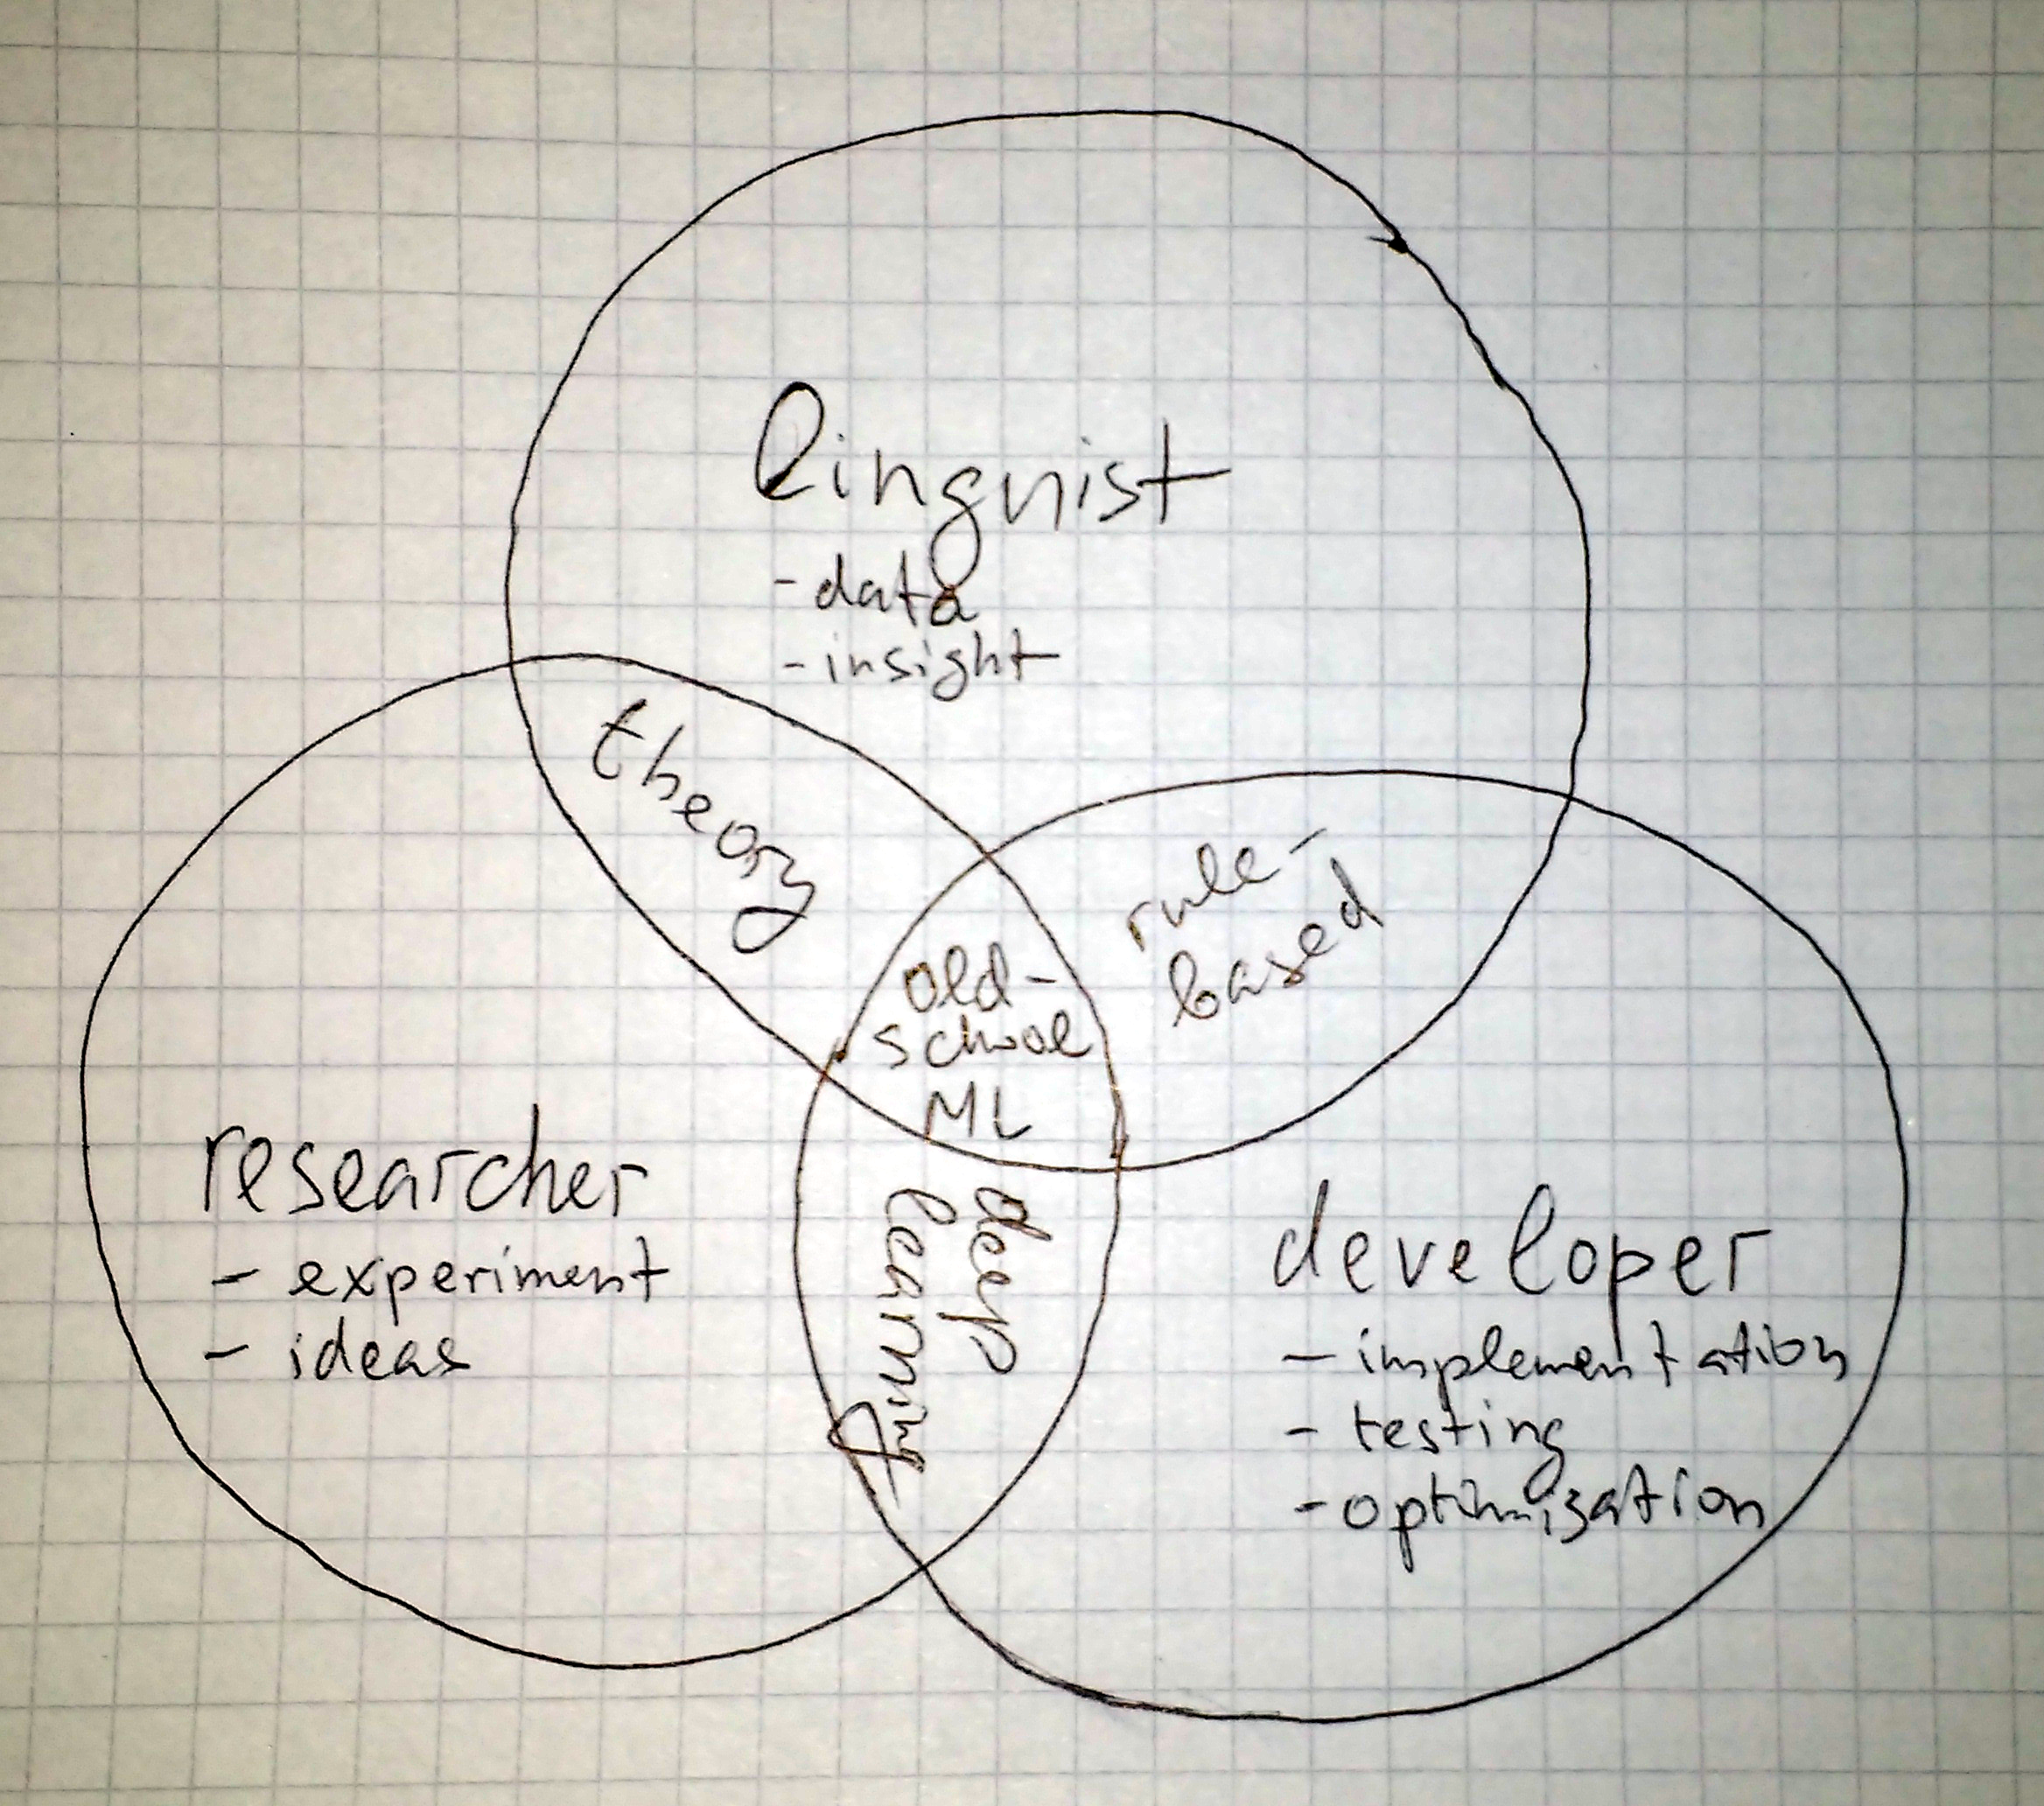 linguist
- data
- insight
theory
rule-
based
old-
school
ML
researcher
- experiment
- ideas
deep
learning
developer
- implementation
- testing
- optimisation